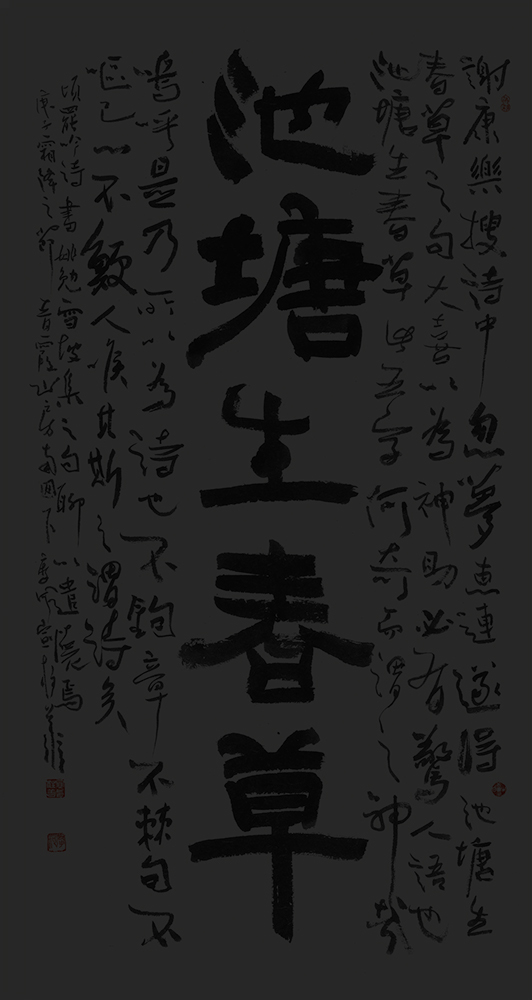 謝康樂搜詩中忽夢惠連遂得池塘生
春草之句大喜以為神助必有驚人語也
池塘生春草此五字何奇而謂之神哉
池塘生春草
嗚呼是乃所以為詩也不鉤章不棘句不
嘔心不鯁人喉其斯之謂詩矣
頃罷吟詩書姚勉雪坡集之句聊以遣懷焉
庚子霜降之節青霞山房南圃下